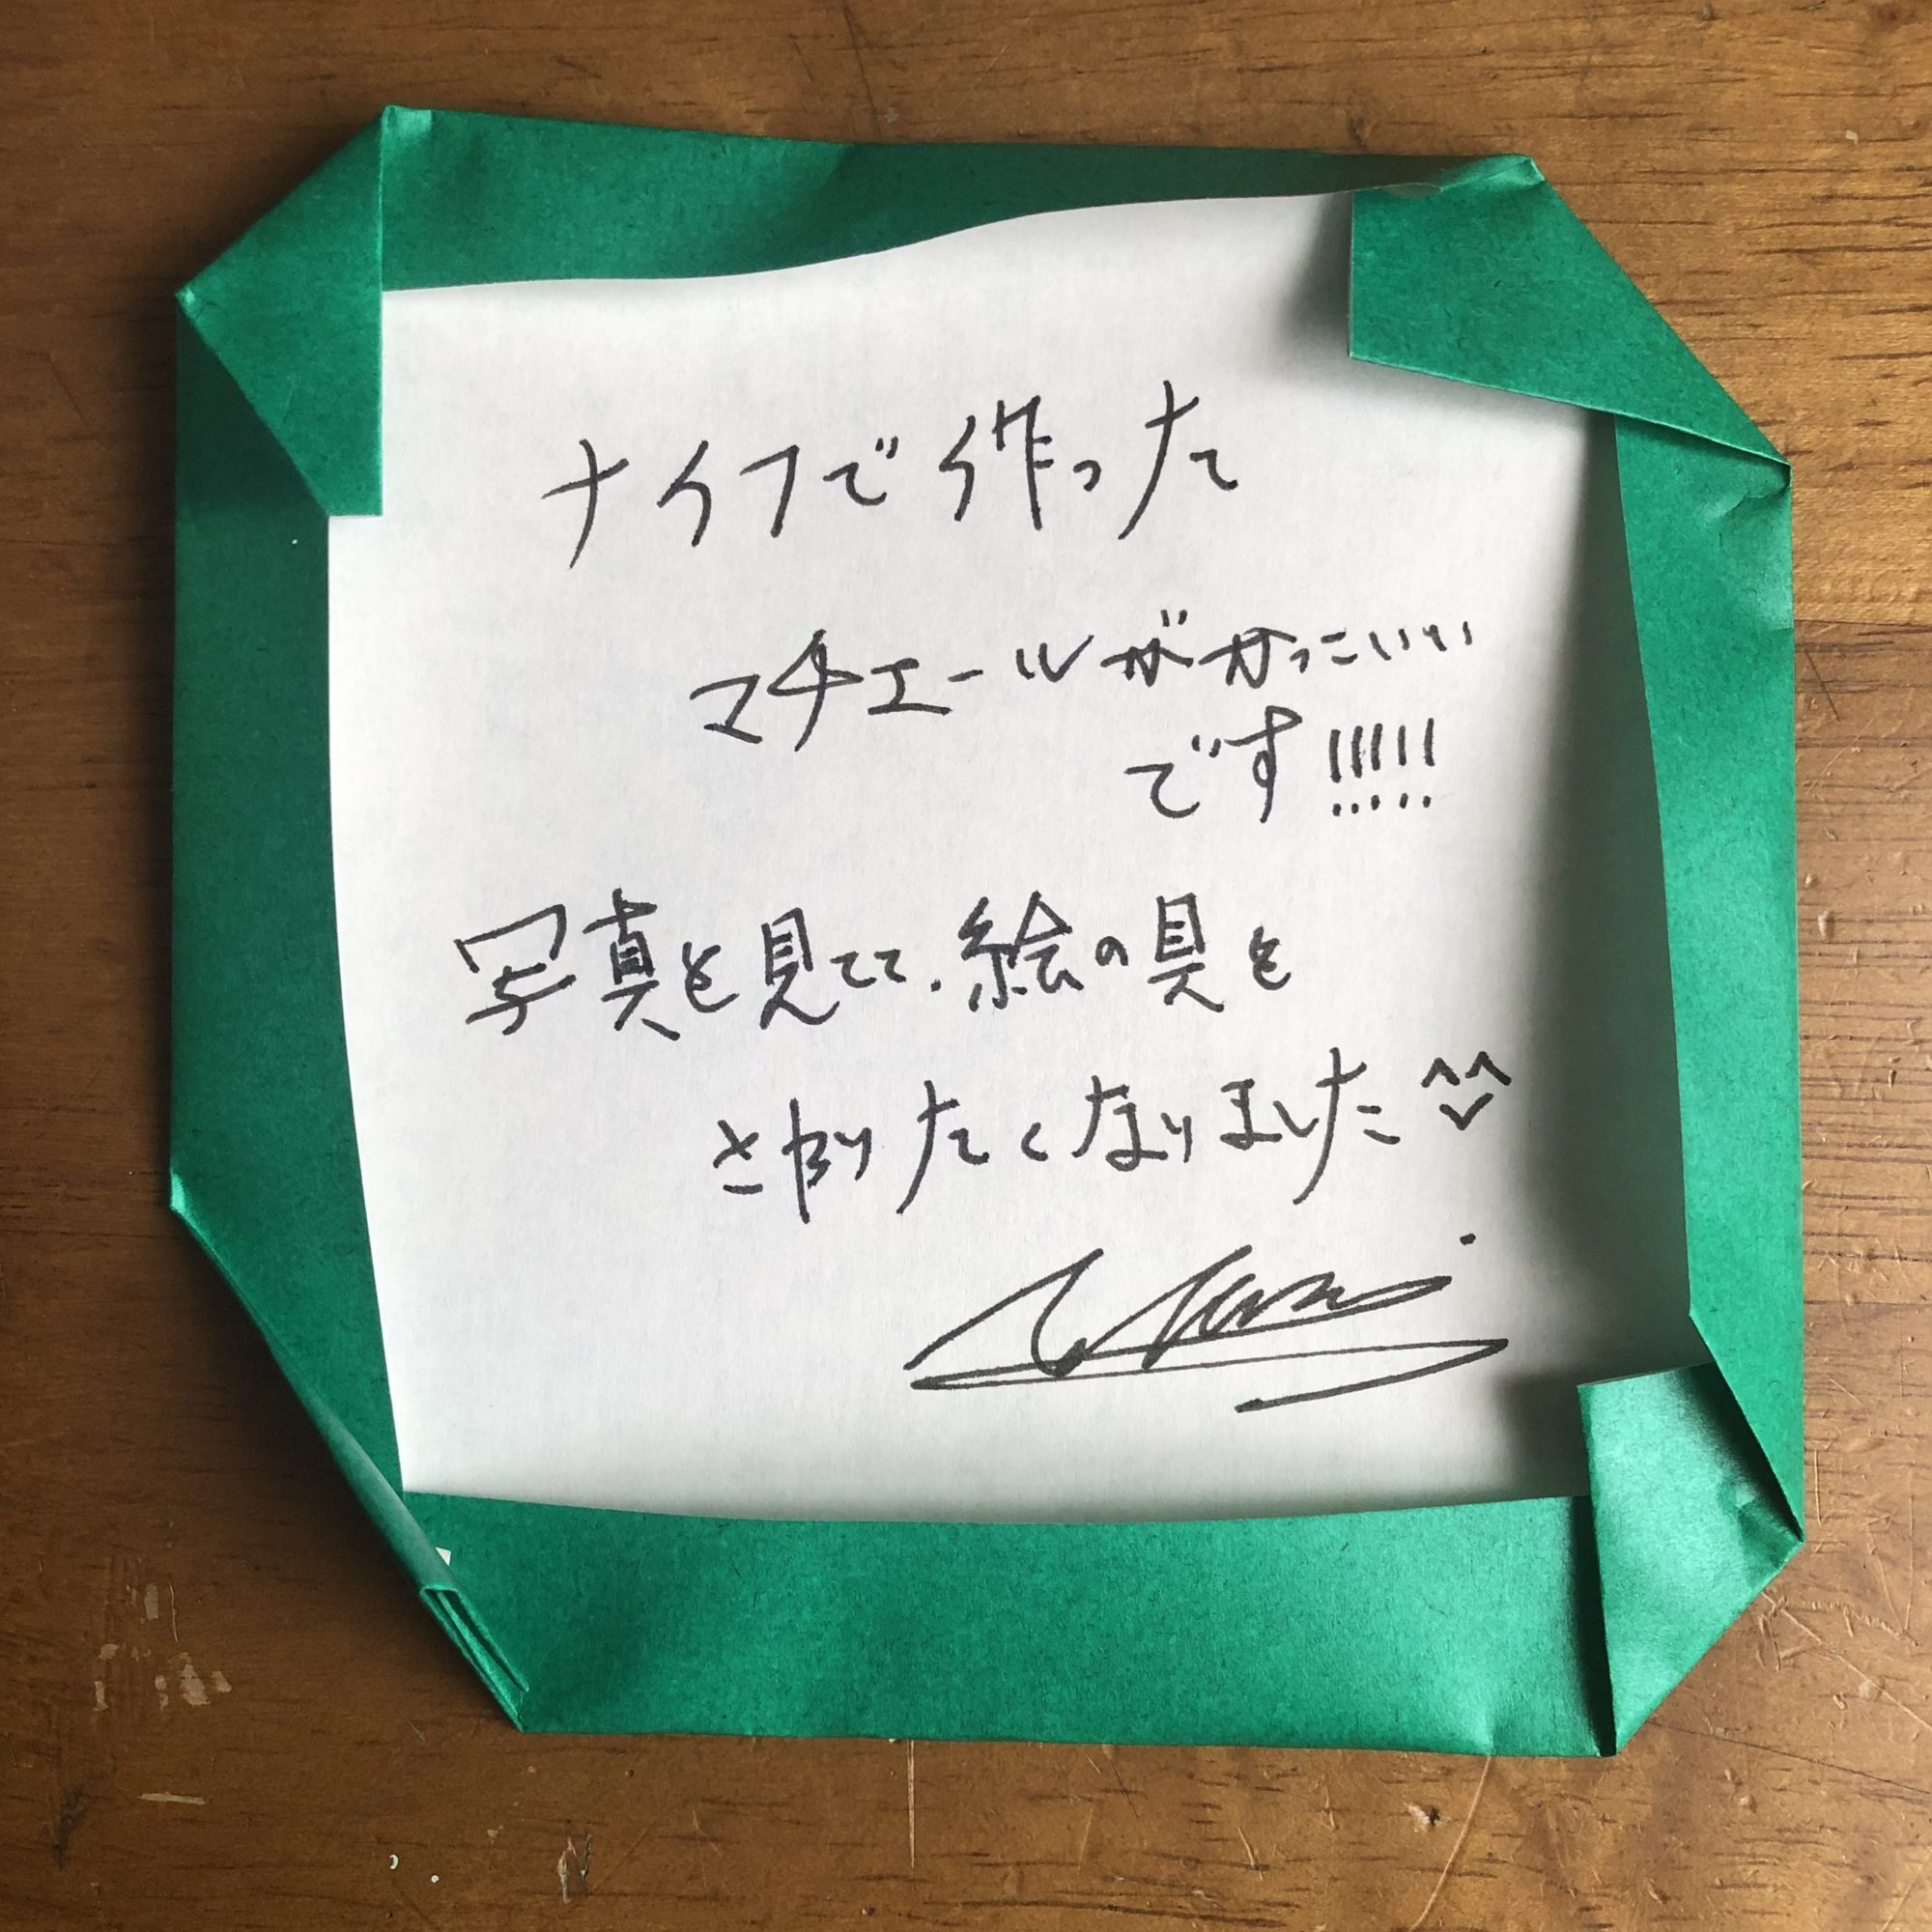 ナイフで作った
マチエールがかっこいい
です!!!!!
写真を見てて、絵の具を
さわりたくなりました^^